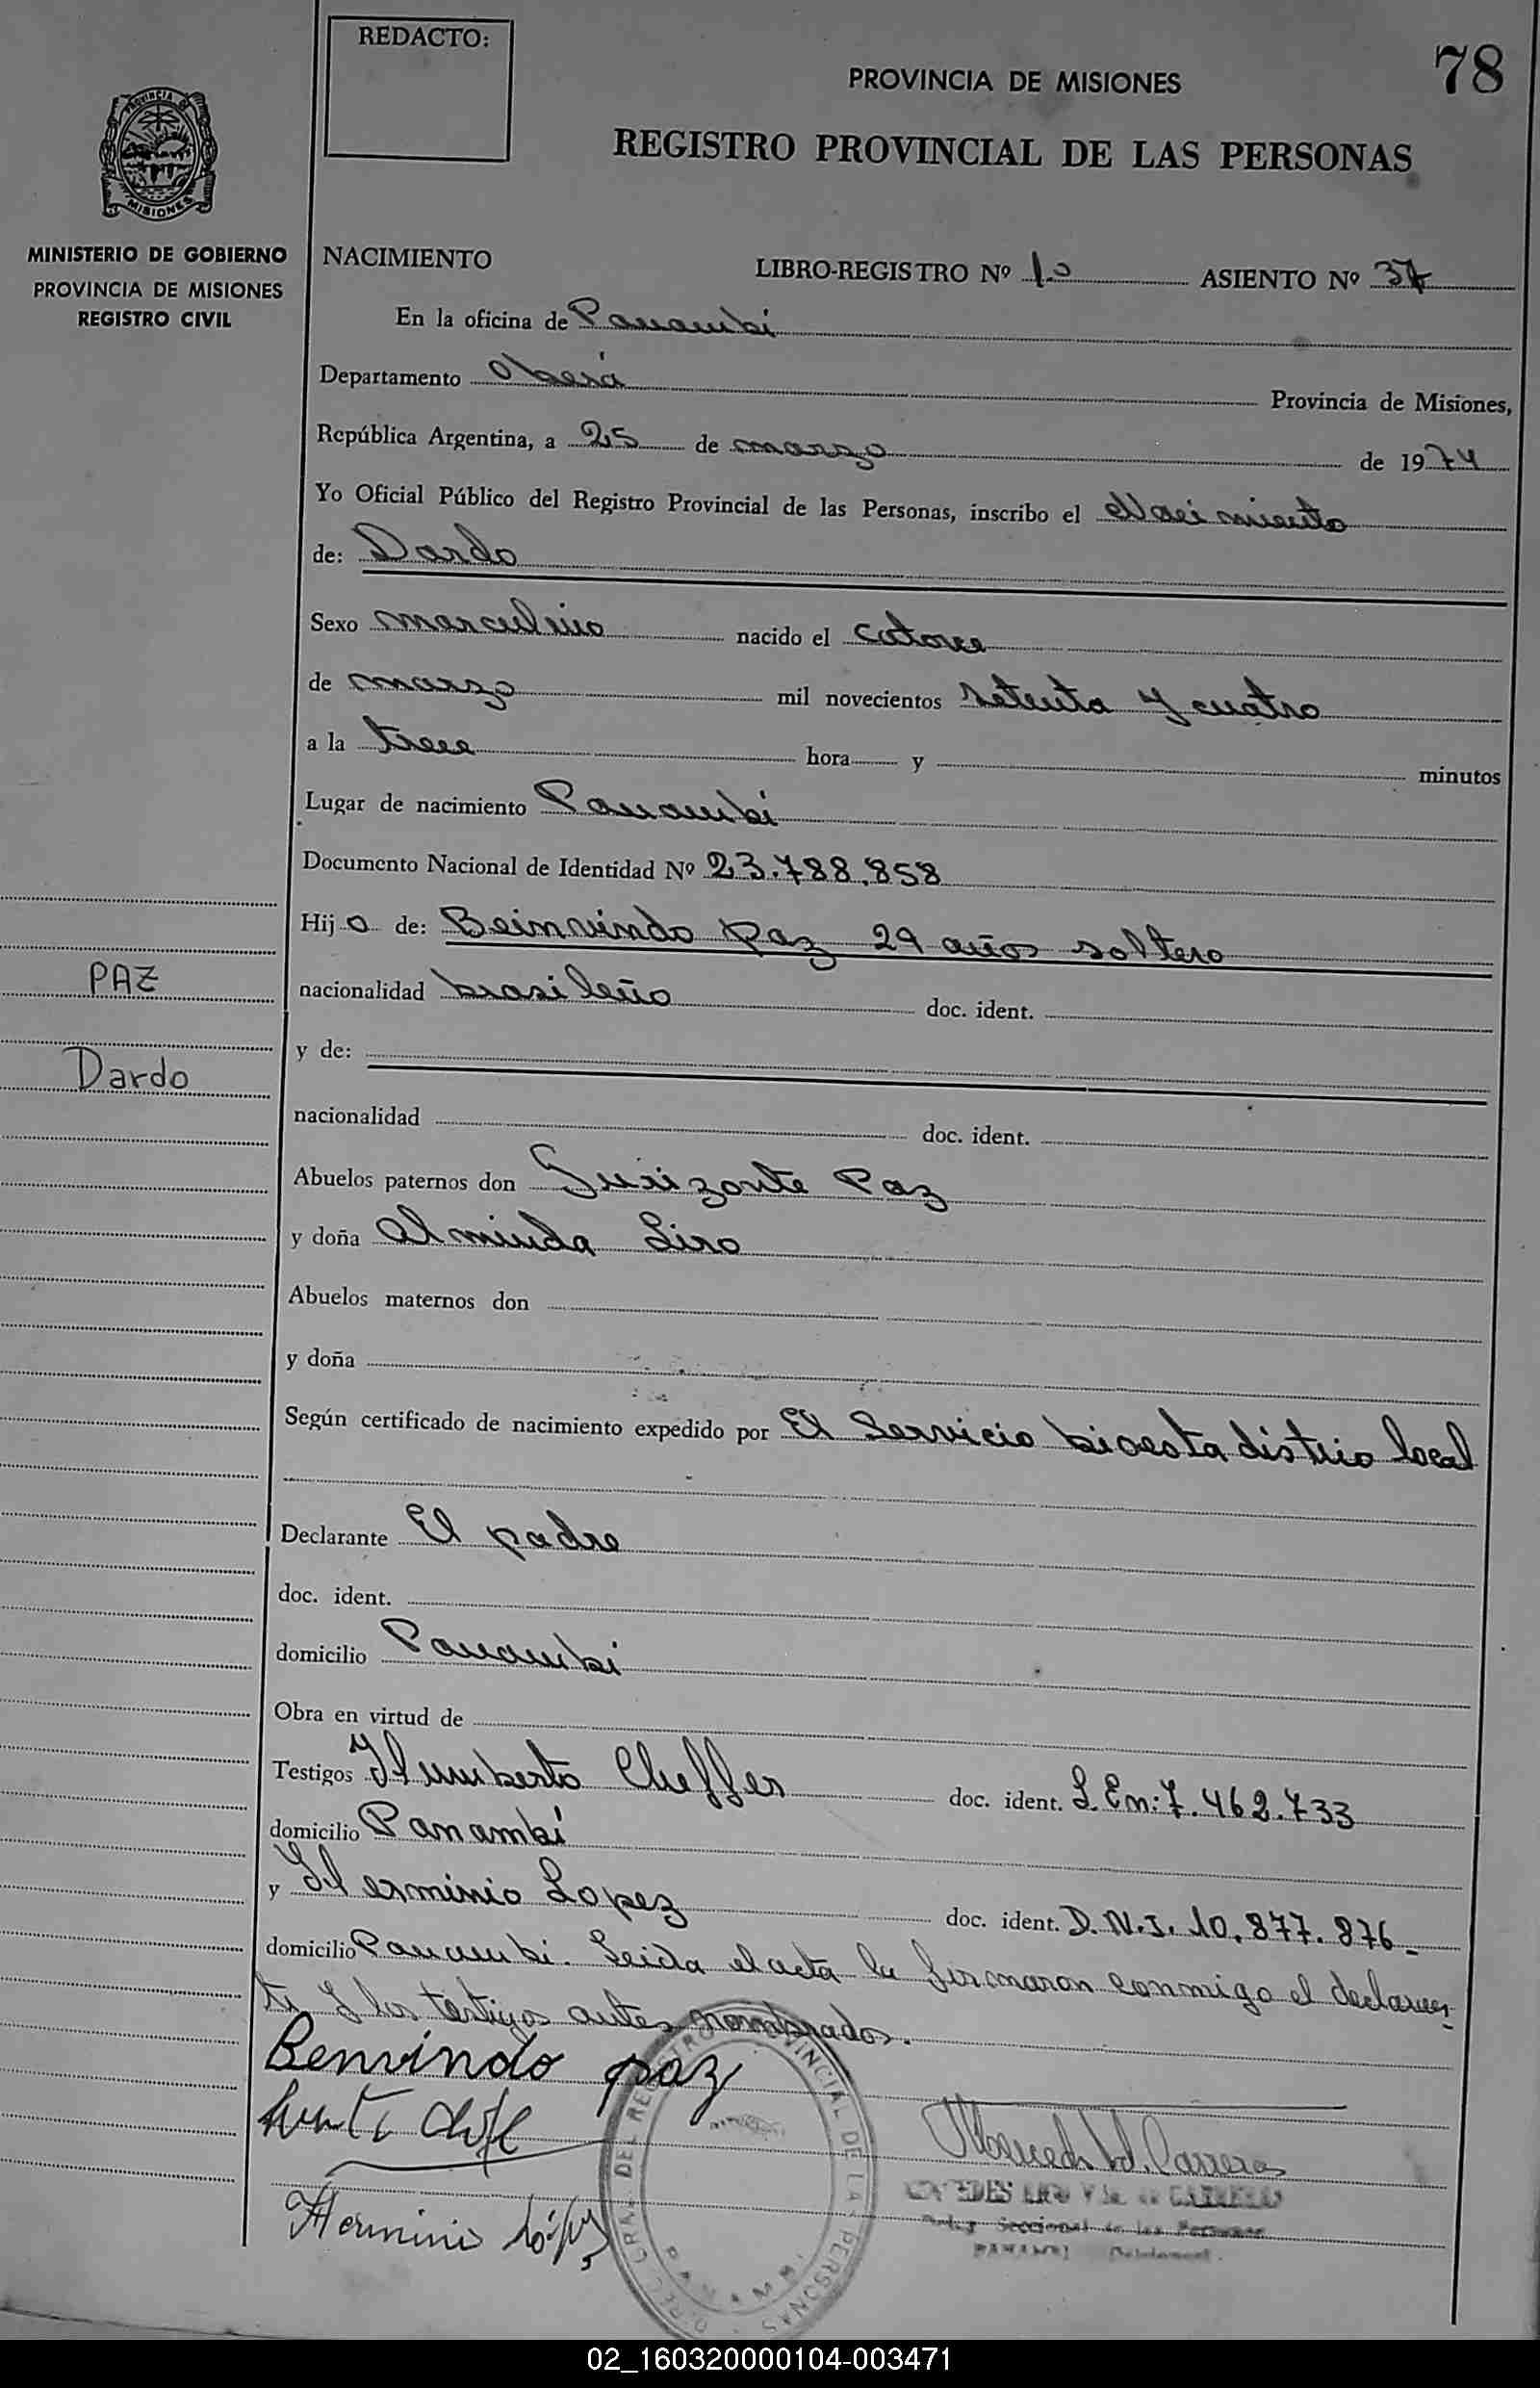 REDACTO:
78
PROVINCIA DE MISIONES
REGISTRO PROVINCIAL DE LAS PERSONAS
PROVINCIA DE
MISIONES
MINISTERIO DE GOBIERNO
PROVINCIA DE MISIONES
REGISTRO CIVIL
NACIMIENTO LIBRO-REGISTRO Nº 1º ASIENTO Nº 37
En la oficina de Panambí
Departamento Oberá Provincia de Misiones,
República Argentina, a 25 de marzo de 1974
Yo Oficial Público del Registro Provincial de las Personas, inscribo el Nacimiento
de: Dardo
Sexo masculino nacido el catorce
de marzo mil novecientos setenta y cuatro
a la trece hora y minutos
Lugar de nacimiento Panambí
Documento Nacional de Identidad Nº 23.788.858
Hijo de: Beinvindo Paz 29 años soltero
PAZ
nacionalidad brasileño doc. ident.
y de:
Dardo
nacionalidad doc. ident.
Abuelos paternos don Paz
y doña Almiuda
Abuelos maternos don
y doña
Según certificado de nacimiento expedido por El Servicio local
Declarante El padre
doc. ident.
domicilio Panambí
Obra en virtud de
Testigos Humberto Cheffer doc. ident. L.En: 7.462.733
domicilio Panambí
y Herminio Lopez doc. ident. D.N.I. 10.877.876-
domicilio Panambí. Leida el acta la firmaron conmigo el declaran-
te y los testigos antes nombrados.
Benvindo paz
Herminio López
DEL REGISTRO PROVINCIAL DE LAS PERSONAS
02_160320000104-003471